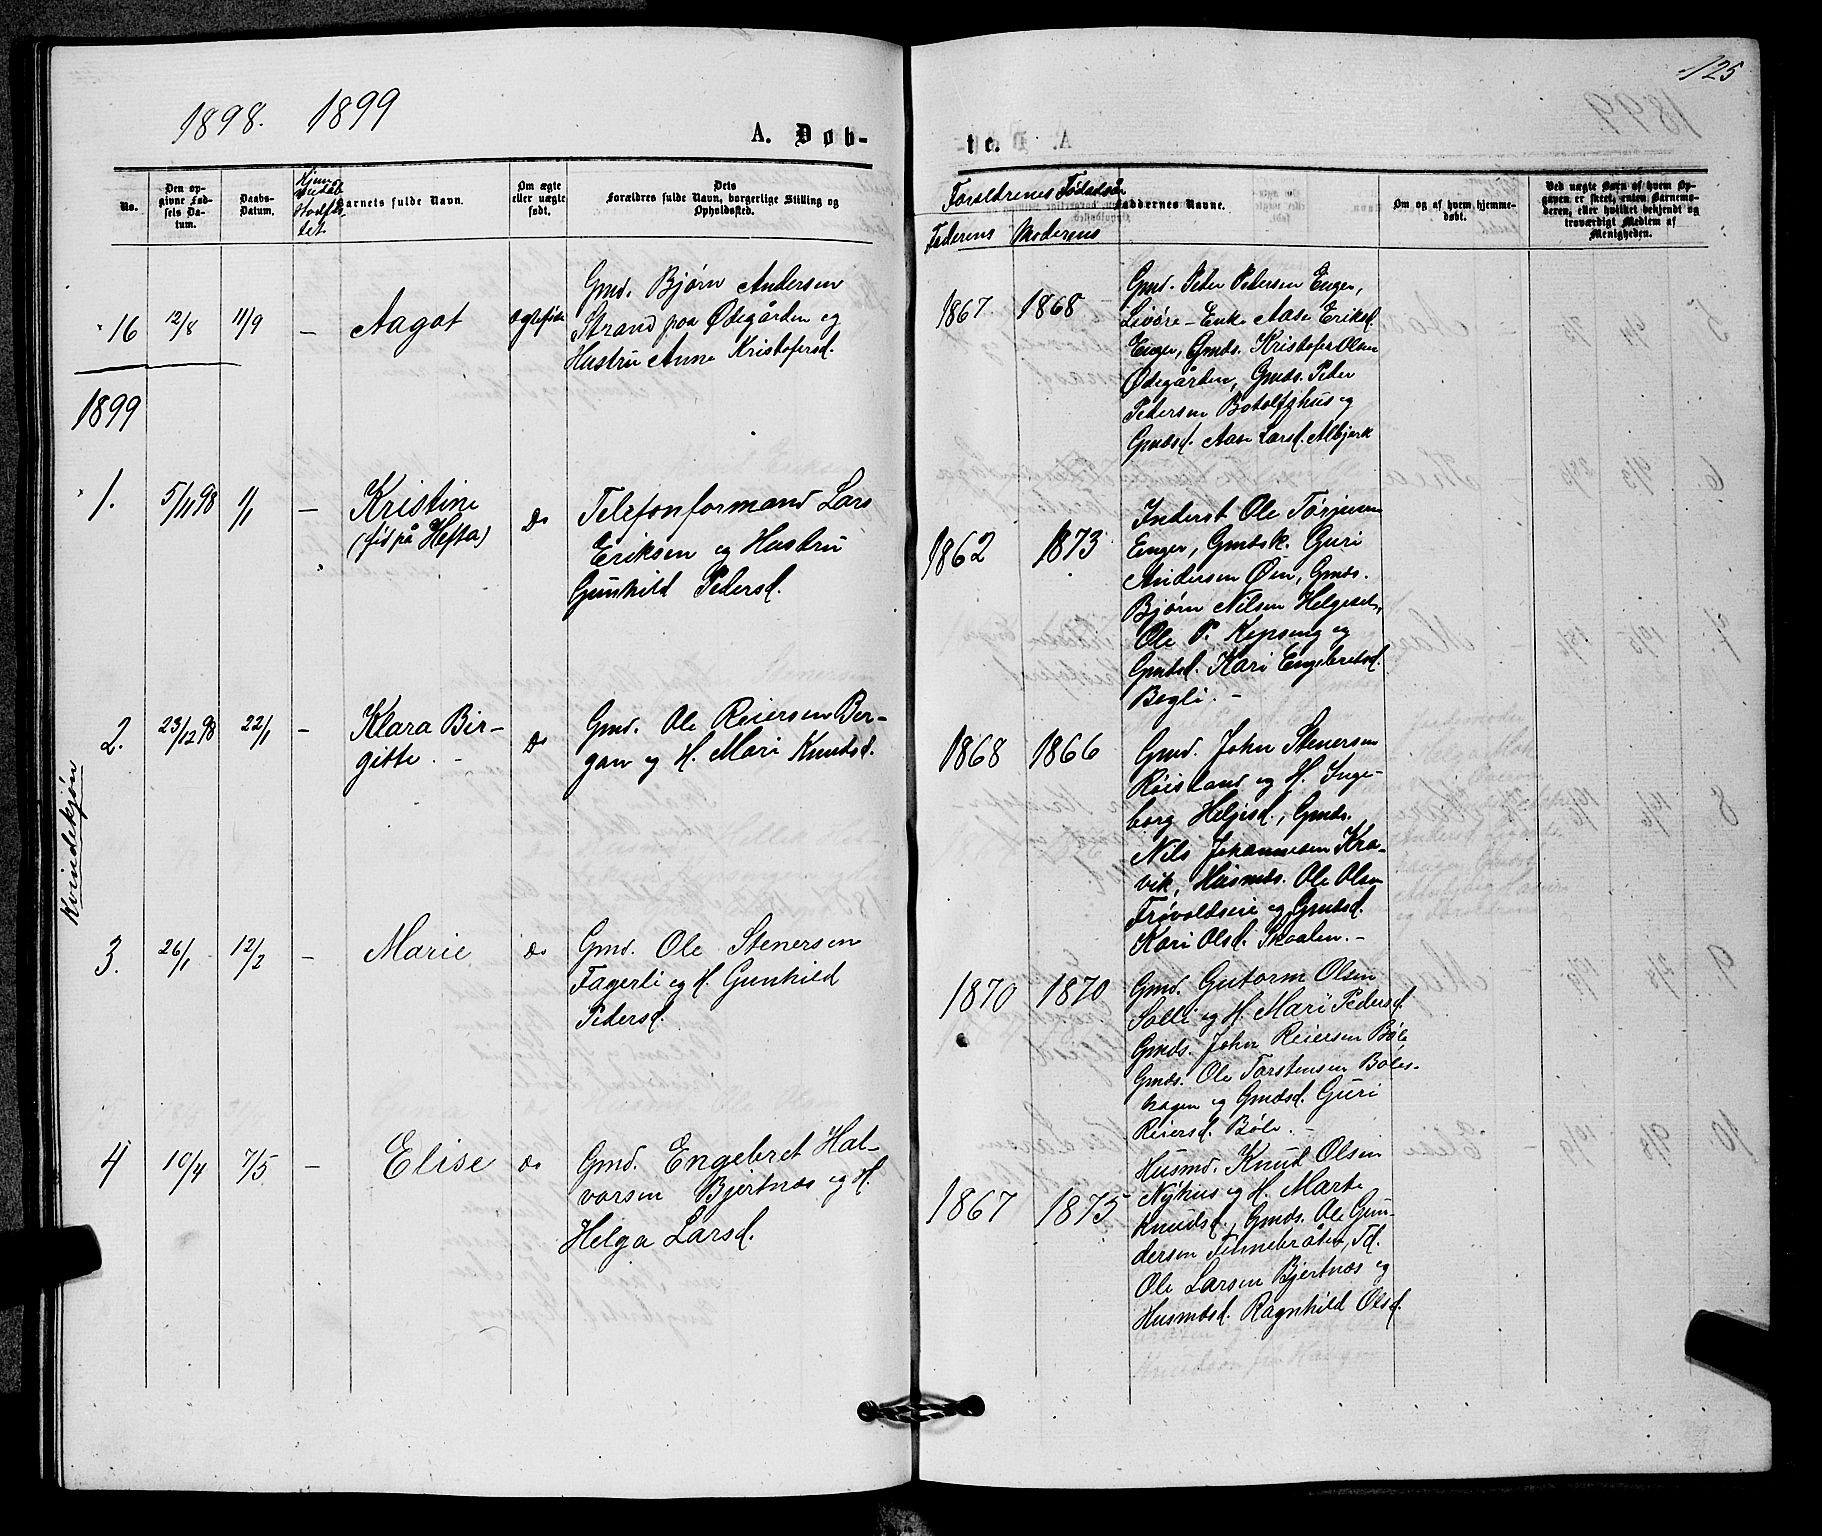 125
1898. 1899
A. Døb-
te.
No.
Den op-
givne Fød-
sels Da-
tum.
Daabs-
Datum.
Barnets fulde Navn.
Om ægte
eller uægte
født.
Dets
Forældres fulde Navn, borgerlige Stilling og
Opholdssted.
Forældrenes Fødselsår
Faderens Moderens
Faddernes Navne.
Om og af hvem hjemme-
døbt.
Ved uægte Børn af hvem Op-
gaven er skeet, enten Barnemo-
deren, eller hvilket bekjendt og
troværdigt Medlem af
Menigheden.
16 12/8 11/9 — Aagot ægtefødt
Gmd. Bjørn Andersen
Strand paa Ødegården og
Hustru Anne Kristofersd.
1867 1868
Gmd. Peder Pedersen Enger,
Livøre-Enke Aase Eriksd.
Enger, Gmds. Kristofer Olsen
Ødegården, Gmds. Peder
Pedersen Botolfshus og
Gmdsd. Aase Larsd. Albjerk
1899
Kvindekjøn
1. 5/11 98 1/1 — Kristine
(fød på Hefta)
Do
Telefonformand Lars
Eriksen og Hustru
Gunhild Pedersd.
1862 1873
Inderst Ole Torjusen
Enger, Gmdsk. Guri
Andersen Øen, Gmds.
Bjørn Nilsen Helgeset,
Ole P. Kepseng og
Gmdsd. Kari Engebretsd.
Begli. —
2. 23/12 98 22/1 — Klara Bir-
gitte. —
Do
Gmd. Ole Reiersen Ber-
gan og H. Mari Knudsd.
1868 1866
Gmd. John Stenersen
Røisland og H. Inge-
borg Helgesd., Gmds.
Nils Johannesen Kra-
vik, Husmds. Ole Olsen
Frøvoldseie og Gmdsd.
Kari Olsd. Skaalen. —
3. 26/1 12/2 — Marie do
Gmd. Ole Stenersen
Fagerli og H. Gunhild
Pedersd.
1870 1870
Gmd. Gutorm Olsen
Solli og H. Mari Pedersd.
Gmds. John Reiersen Bøle,
Gmds. Ole Torstensen Boles-
hagen og Gmdsd. Guri
Reiersd. Bøle. —
4 10/4 7/5 — Elise do
Gmd. Engebret Hal-
vorsen Bjertnæs og H.
Helga Larsd.
1867 1875
Husmd. Knud Olsen
Nyhus og H. Marte
Knudsd., Gmds. Ole Gun-
dersen Finnebråten, Td.
Ole Larsen Bjertnæs og
Husmdsd. Ragnhild Olsd.